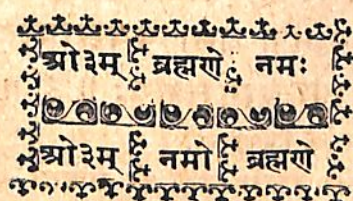 ओ३म् ब्रह्मणे नमः
ओ३म् नमो ब्रह्मणे